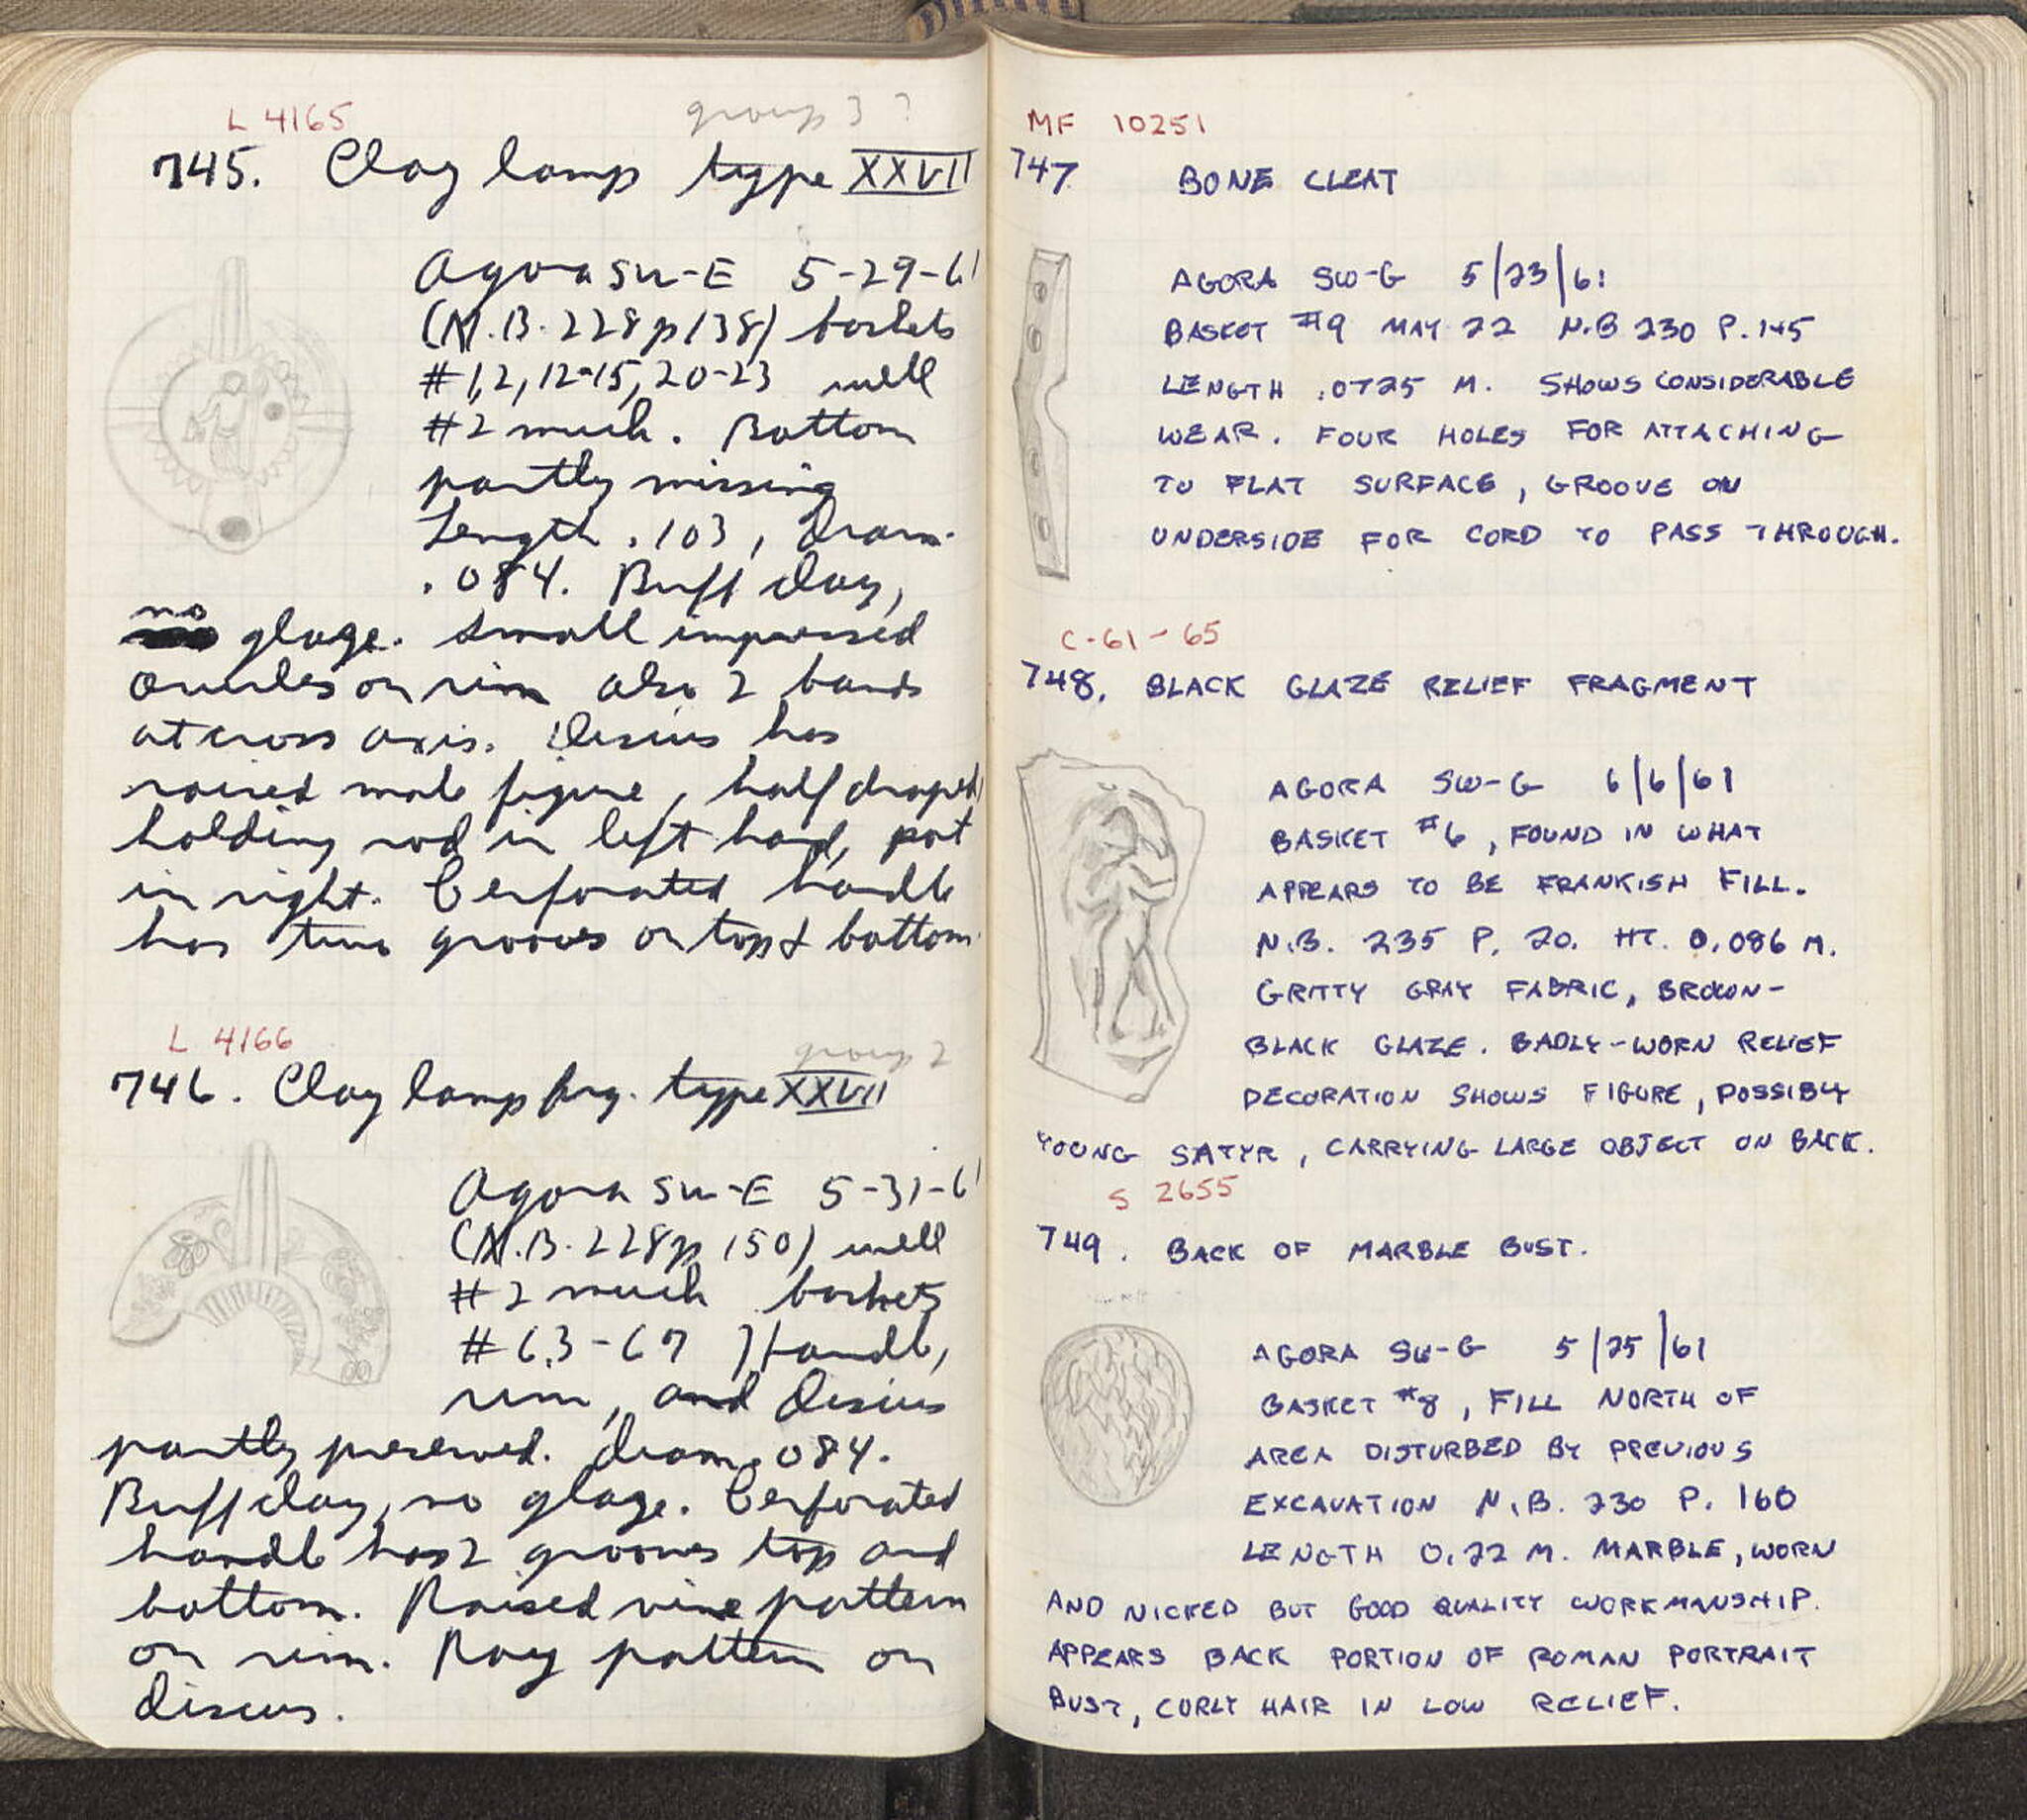 L 4165
group 3 ?
745. Clay lamp type XXVII
Agora SW-E 5-29-61
(N.B. 228 p 138) baskets
#1,2,12-15,20-23 well
#2 much. Bottom
partly missing
Length .103, Diam.
.084. Buff clay,
no glaze. Small impressed
ovules on rim also 2 bands
at cross axis. Discus has
raised male figure, half draped
holding rod in left hand, pot
in right. Perforated handle
has two grooves on top & bottom.
L 4166
group 2
746. Clay lamp frg. type XXVII
Agora SW-E 5-31-61
(N.B. 228 p 150) well
#2 much baskets
#63-67 Handle,
rim, and discus
partly preserved. Diam. .084.
Buff clay, no glaze. Perforated
handle has 2 grooves top and
bottom. Raised vine pattern
on rim. Ray pattern on
discus.
MF 10251
747 BONE CLEAT
AGORA SW-G 5/23/61
BASKET #9 MAY 22 N.B 230 P. 145
LENGTH .0725 M. SHOWS CONSIDERABLE
WEAR. FOUR HOLES FOR ATTACHING
TO FLAT SURFACE, GROOVE ON
UNDERSIDE FOR CORD TO PASS THROUGH.
C-61-65
748. BLACK GLAZE RELIEF FRAGMENT
AGORA SW-G 6/6/61
BASKET #6, FOUND IN WHAT
APPEARS TO BE FRANKISH FILL.
N.B. 235 P. 20. HT. 0.086 M.
GRITTY GRAY FABRIC, BROWN-
BLACK GLAZE. BADLY-WORN RELIEF
DECORATION SHOWS FIGURE, POSSIBLY
YOUNG SATYR, CARRYING LARGE OBJECT ON BACK.
S 2655
749. BACK OF MARBLE BUST.
AGORA SW-G 5/25/61
BASKET #8, FILL NORTH OF
AREA DISTURBED BY PREVIOUS
EXCAVATION N.B. 230 P. 160
LENGTH 0.22 M. MARBLE, WORN
AND NICKED BUT GOOD QUALITY WORKMANSHIP.
APPEARS BACK PORTION OF ROMAN PORTRAIT
BUST, CURLY HAIR IN LOW RELIEF.